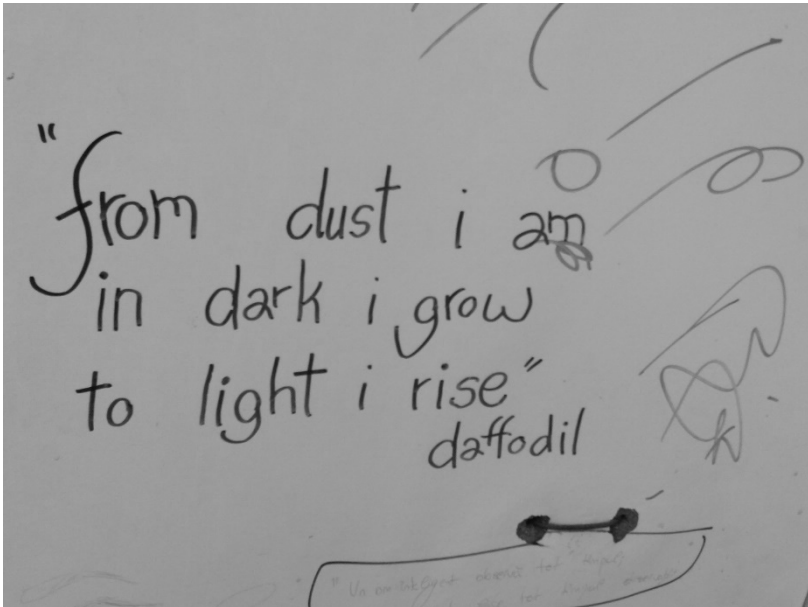 "from dust i am
in dark i grow
to light i rise"
daffodil